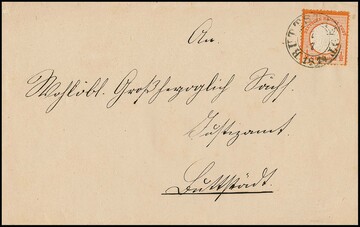 An
Wohllöbl. Großherzoglich Sächs.
Justizamt.
Buttstädt.